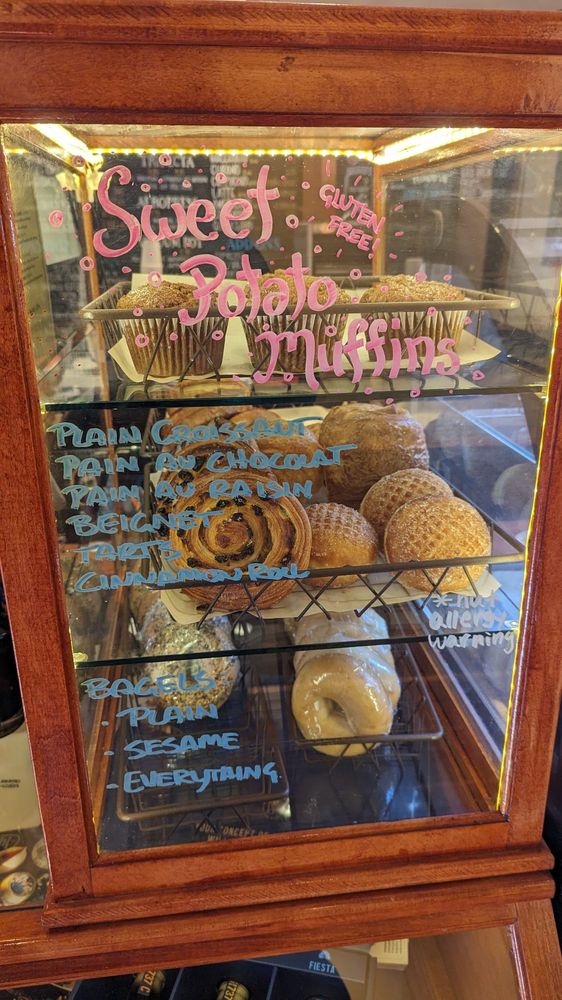 Sweet
GLUTEN
FREE!
Potato
Muffins
PLAIN CROISSANT
PAIN AU CHOCOLAT
PAIN AU RAISIN
BEIGNET
TARTS
CINNAMON ROLL
* nut
allergy
warning
BAGELS
- PLAIN
- SESAME
- EVERYTHING
FIESTA